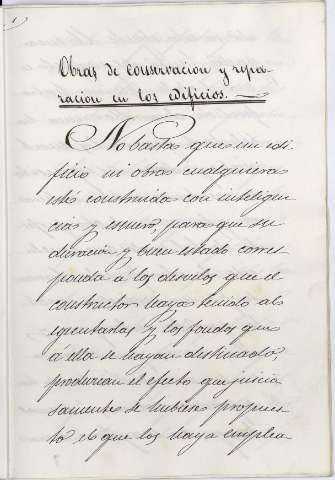 1
Obras de conservacion y repa-
racion en los edificios.
No basta que un edi-
ficio ni obra cualquiera
esté construida con inteligen
cia y esmero, para que su
duracion y buen estado corres-
ponda á los desvelos que el
constructor haya tenido al
egecutarla y los fondos que
á ella se hayan destinado,
produzcan el efecto que juicio
samente se hubiese propues-
to el que los haya emplea-